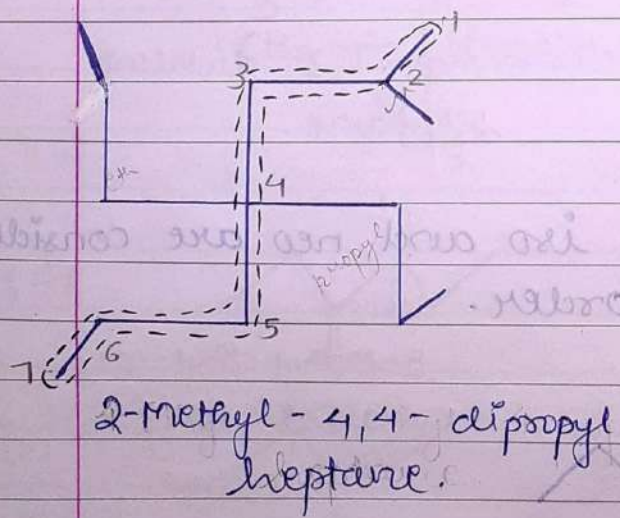 1
3
2
4
propyl
5
6
7
2-Methyl - 4,4 - dipropyl
heptane.